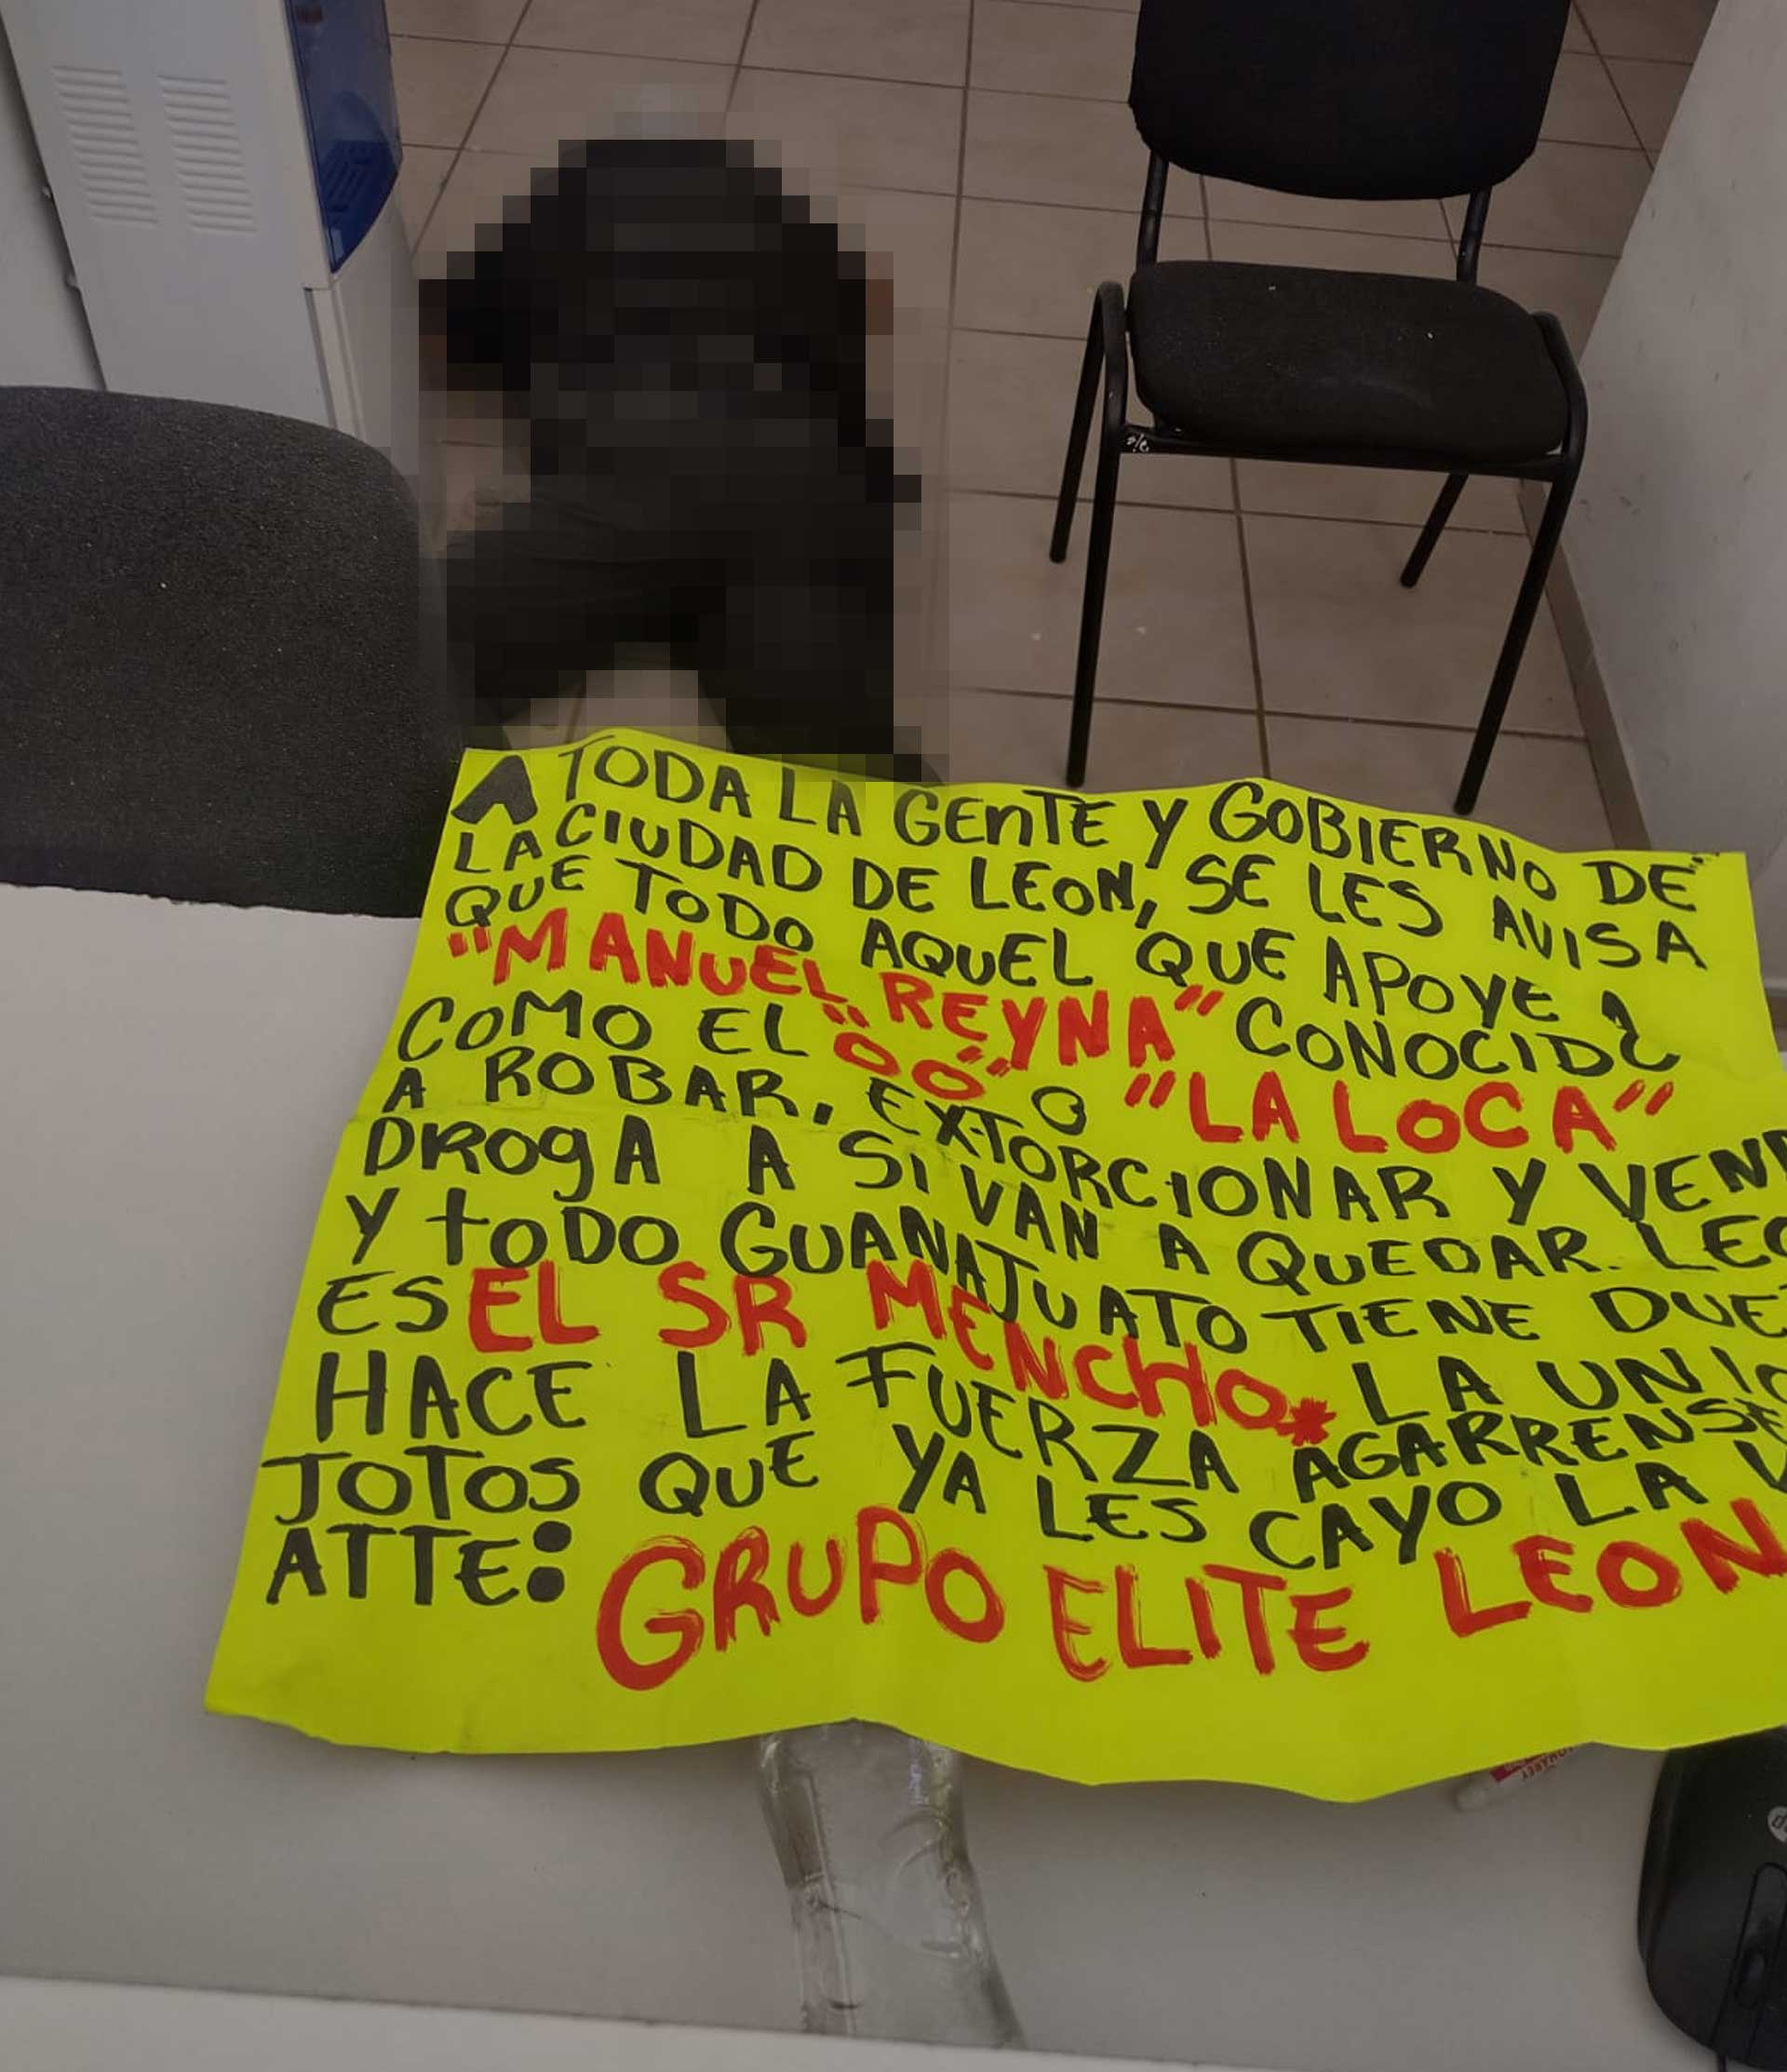 A TODA LA GENTE Y GOBIERNO DE
LA CIUDAD DE LEON, SE LES AVISA
QUE TODO AQUEL QUE APOYE A
"MANUEL REYNA" CONOCIDO
COMO EL "OO" O "LA LOCA"
A ROBAR, EXTORCIONAR Y VEND
DROGA A SI VAN A QUEDAR. LEO
Y TODO GUANAJUATO TIENE DUE
ES EL SR MENCHO* LA UNIO
HACE LA FUERZA AGARRENSE
JOTOS QUE YA LES CAYO LA V
ATTE: GRUPO ELITE LEON